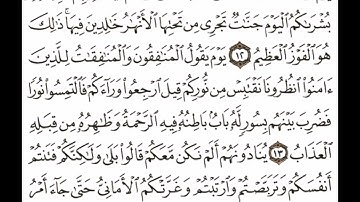 بُشْرَىٰكُمُ ٱلْيَوْمَ جَنَّـٰتٌ تَجْرِى مِن تَحْتِهَا ٱلْأَنْهَـٰرُ خَـٰلِدِينَ فِيهَا ۚ ذَٰلِكَ
هُوَ ٱلْفَوْزُ ٱلْعَظِيمُ ١٢ يَوْمَ يَقُولُ ٱلْمُنَـٰفِقُونَ وَٱلْمُنَـٰفِقَـٰتُ لِلَّذِينَ
ءَامَنُوا۟ ٱنظُرُونَا نَقْتَبِسْ مِن نُّورِكُمْ قِيلَ ٱرْجِعُوا۟ وَرَآءَكُمْ فَٱلْتَمِسُوا۟ نُورًا
فَضُرِبَ بَيْنَهُم بِسُورٍ لَّهُۥ بَابٌۢ بَاطِنُهُۥ فِيهِ ٱلرَّحْمَةُ وَظَـٰهِرُهُۥ مِن قِبَلِهِ
ٱلْعَذَابُ ١٣ يُنَادُونَهُمْ أَلَمْ نَكُن مَّعَكُمْ ۖ قَالُوا۟ بَلَىٰ وَلَـٰكِنَّكُمْ فَتَنتُمْ
أَنفُسَكُمْ وَتَرَبَّصْتُمْ وَٱرْتَبْتُمْ وَغَرَّتْكُمُ ٱلْأَمَانِىُّ حَتَّىٰ جَآءَ أَمْرُ